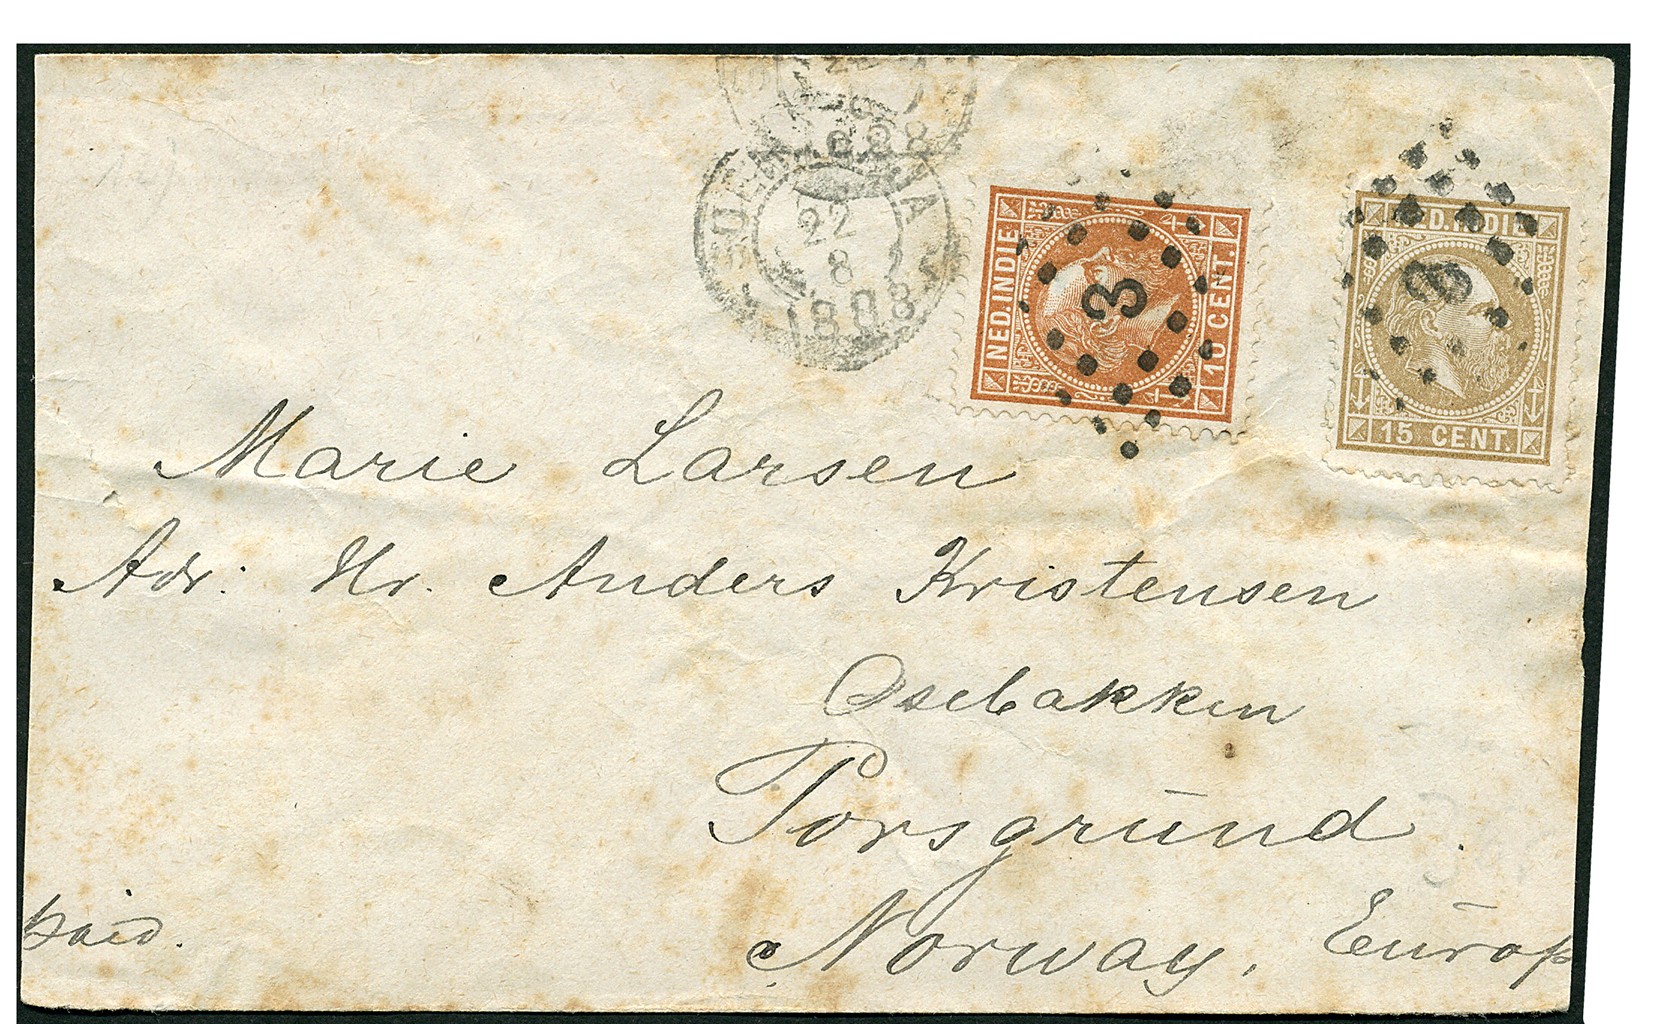 1888
22
8
1888
NED. INDIE
10 CENT.
3
NED. INDIE
15 CENT.
3
Marie Larsen
Adr: Hr. Anders Kristensen
Osebakken
Porsgrund.
Norway, Europ
paid.